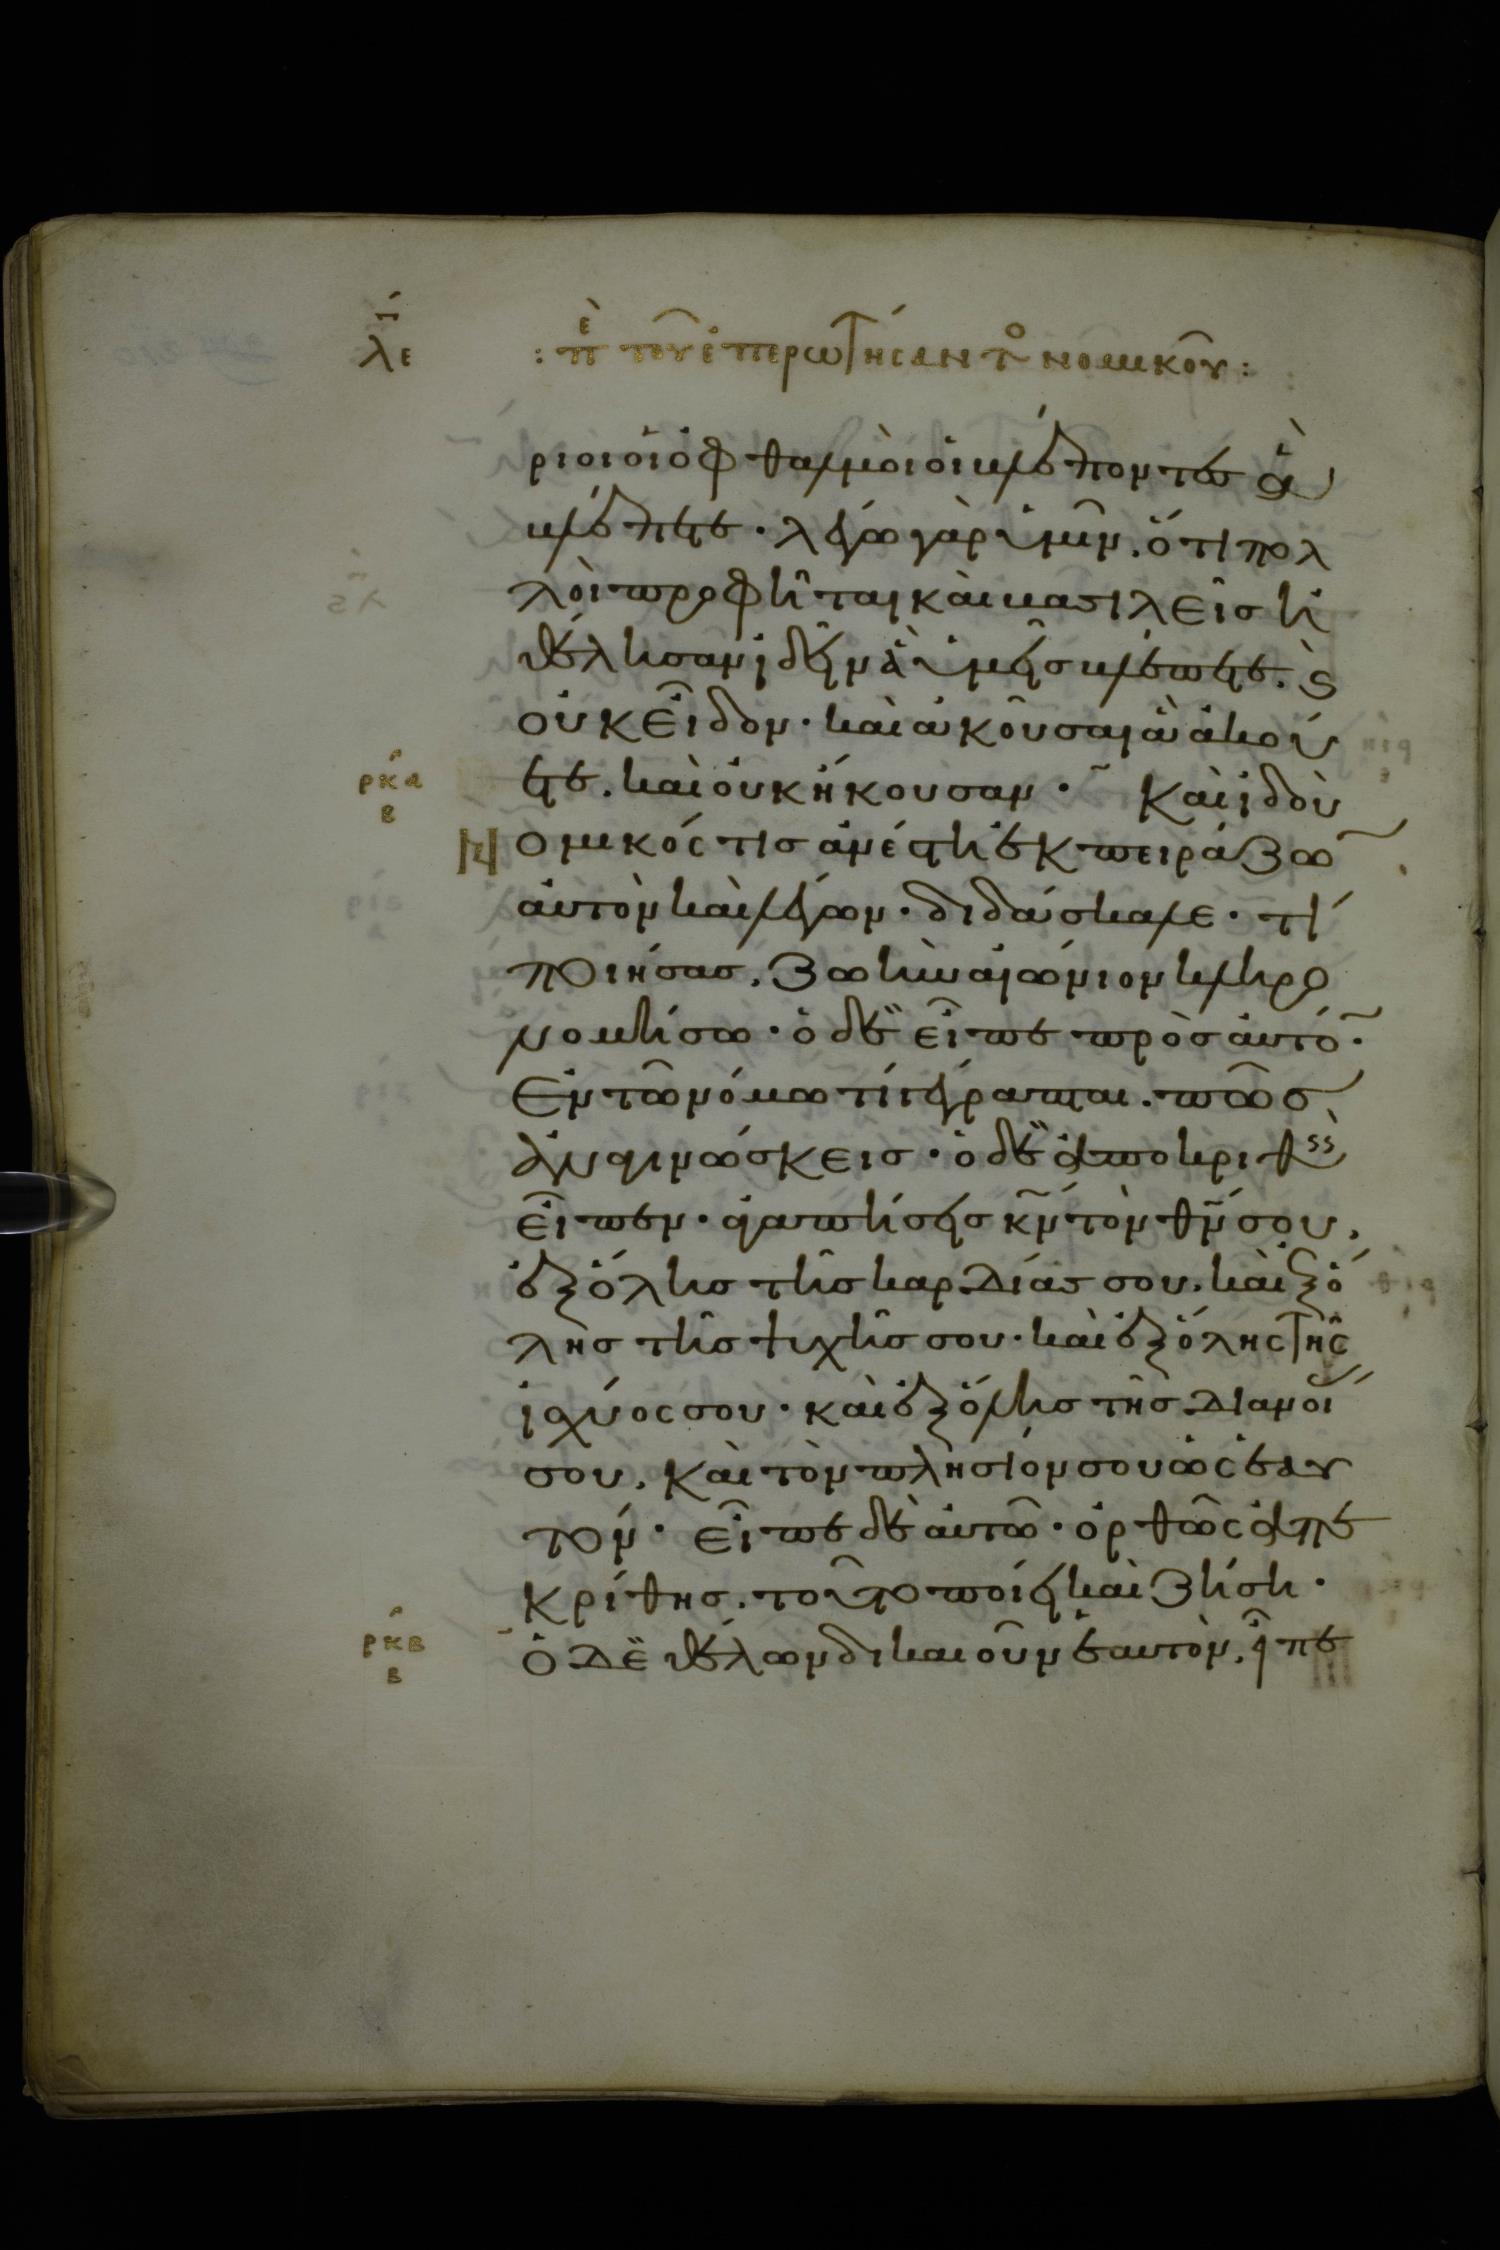 λε
: πε τοῦ ἐπερωτήσαντο νομικοῦ :
ριοι οἱ ὀφθαλμοὶ οἱ βλέποντες ἃ
βλέπετε · λέγω γὰρ ὑμῖν, ὅτι πολ
λοὶ προφῆται καὶ βασιλεῖς ἠ
θέλησαν ἰδεῖν ἃ ὑμεῖς βλέπετε. ϗ
οὐκ εἶδον · καὶ ἀκοῦσαι ἃ ἀκού
ετε. καὶ οὐκ ἤκουσαν · Καὶ ἰδοὺ
ρκα
β
Νομικός τις ἀνέστη ἐκπειράζω
αὐτὸν καὶ λέγων · διδάσκαλε · τί
ποιήσας, ζωὴν αἰώνιον κληρο
νομήσω · ὁ δὲ εἶπε πρὸς αὐτό ·
Ἐν τῶ νόμω τί γέγραπται. πῶς
ἀναγινώσκεις · ὁ δὲ ἀποκριθεὶς
εἶπεν · ἀγαπήσεις κν τὸν θν σου,
ἐξ ὅλης τῆς καρδίας σου, καὶ ἐξ ὅ
λης τῆς ψυχῆς σου · καὶ ἐξ ὅλης τῆς
ἰσχύος σου · καὶ ἐξ ὅλης τῆς διανοί
σου, καὶ τὸν πλησίον σου ὡς ἑαυ
τόν · εἶπε δὲ αὐτῶ · ὀρθῶς ἀπε
κρίθης. τοῦτο ποίει καὶ ζήση ·
ρκβ
β
Ὁ δὲ θέλων δικαιοῦν ἑαυτὸν, εἶπε